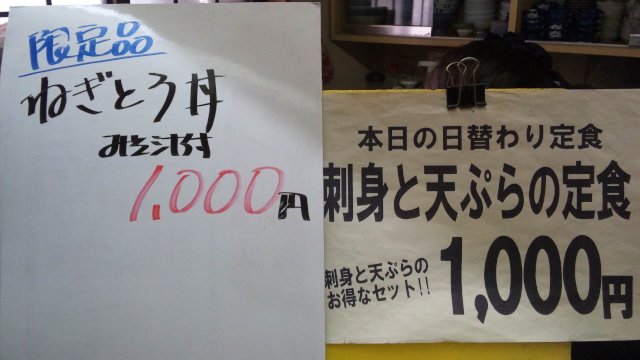 限定品
ねぎとろ丼
みそ汁付
1,000円
本日の日替わり定食
刺身と天ぷらの定食
刺身と天ぷらの
お得なセット!!
1,000円